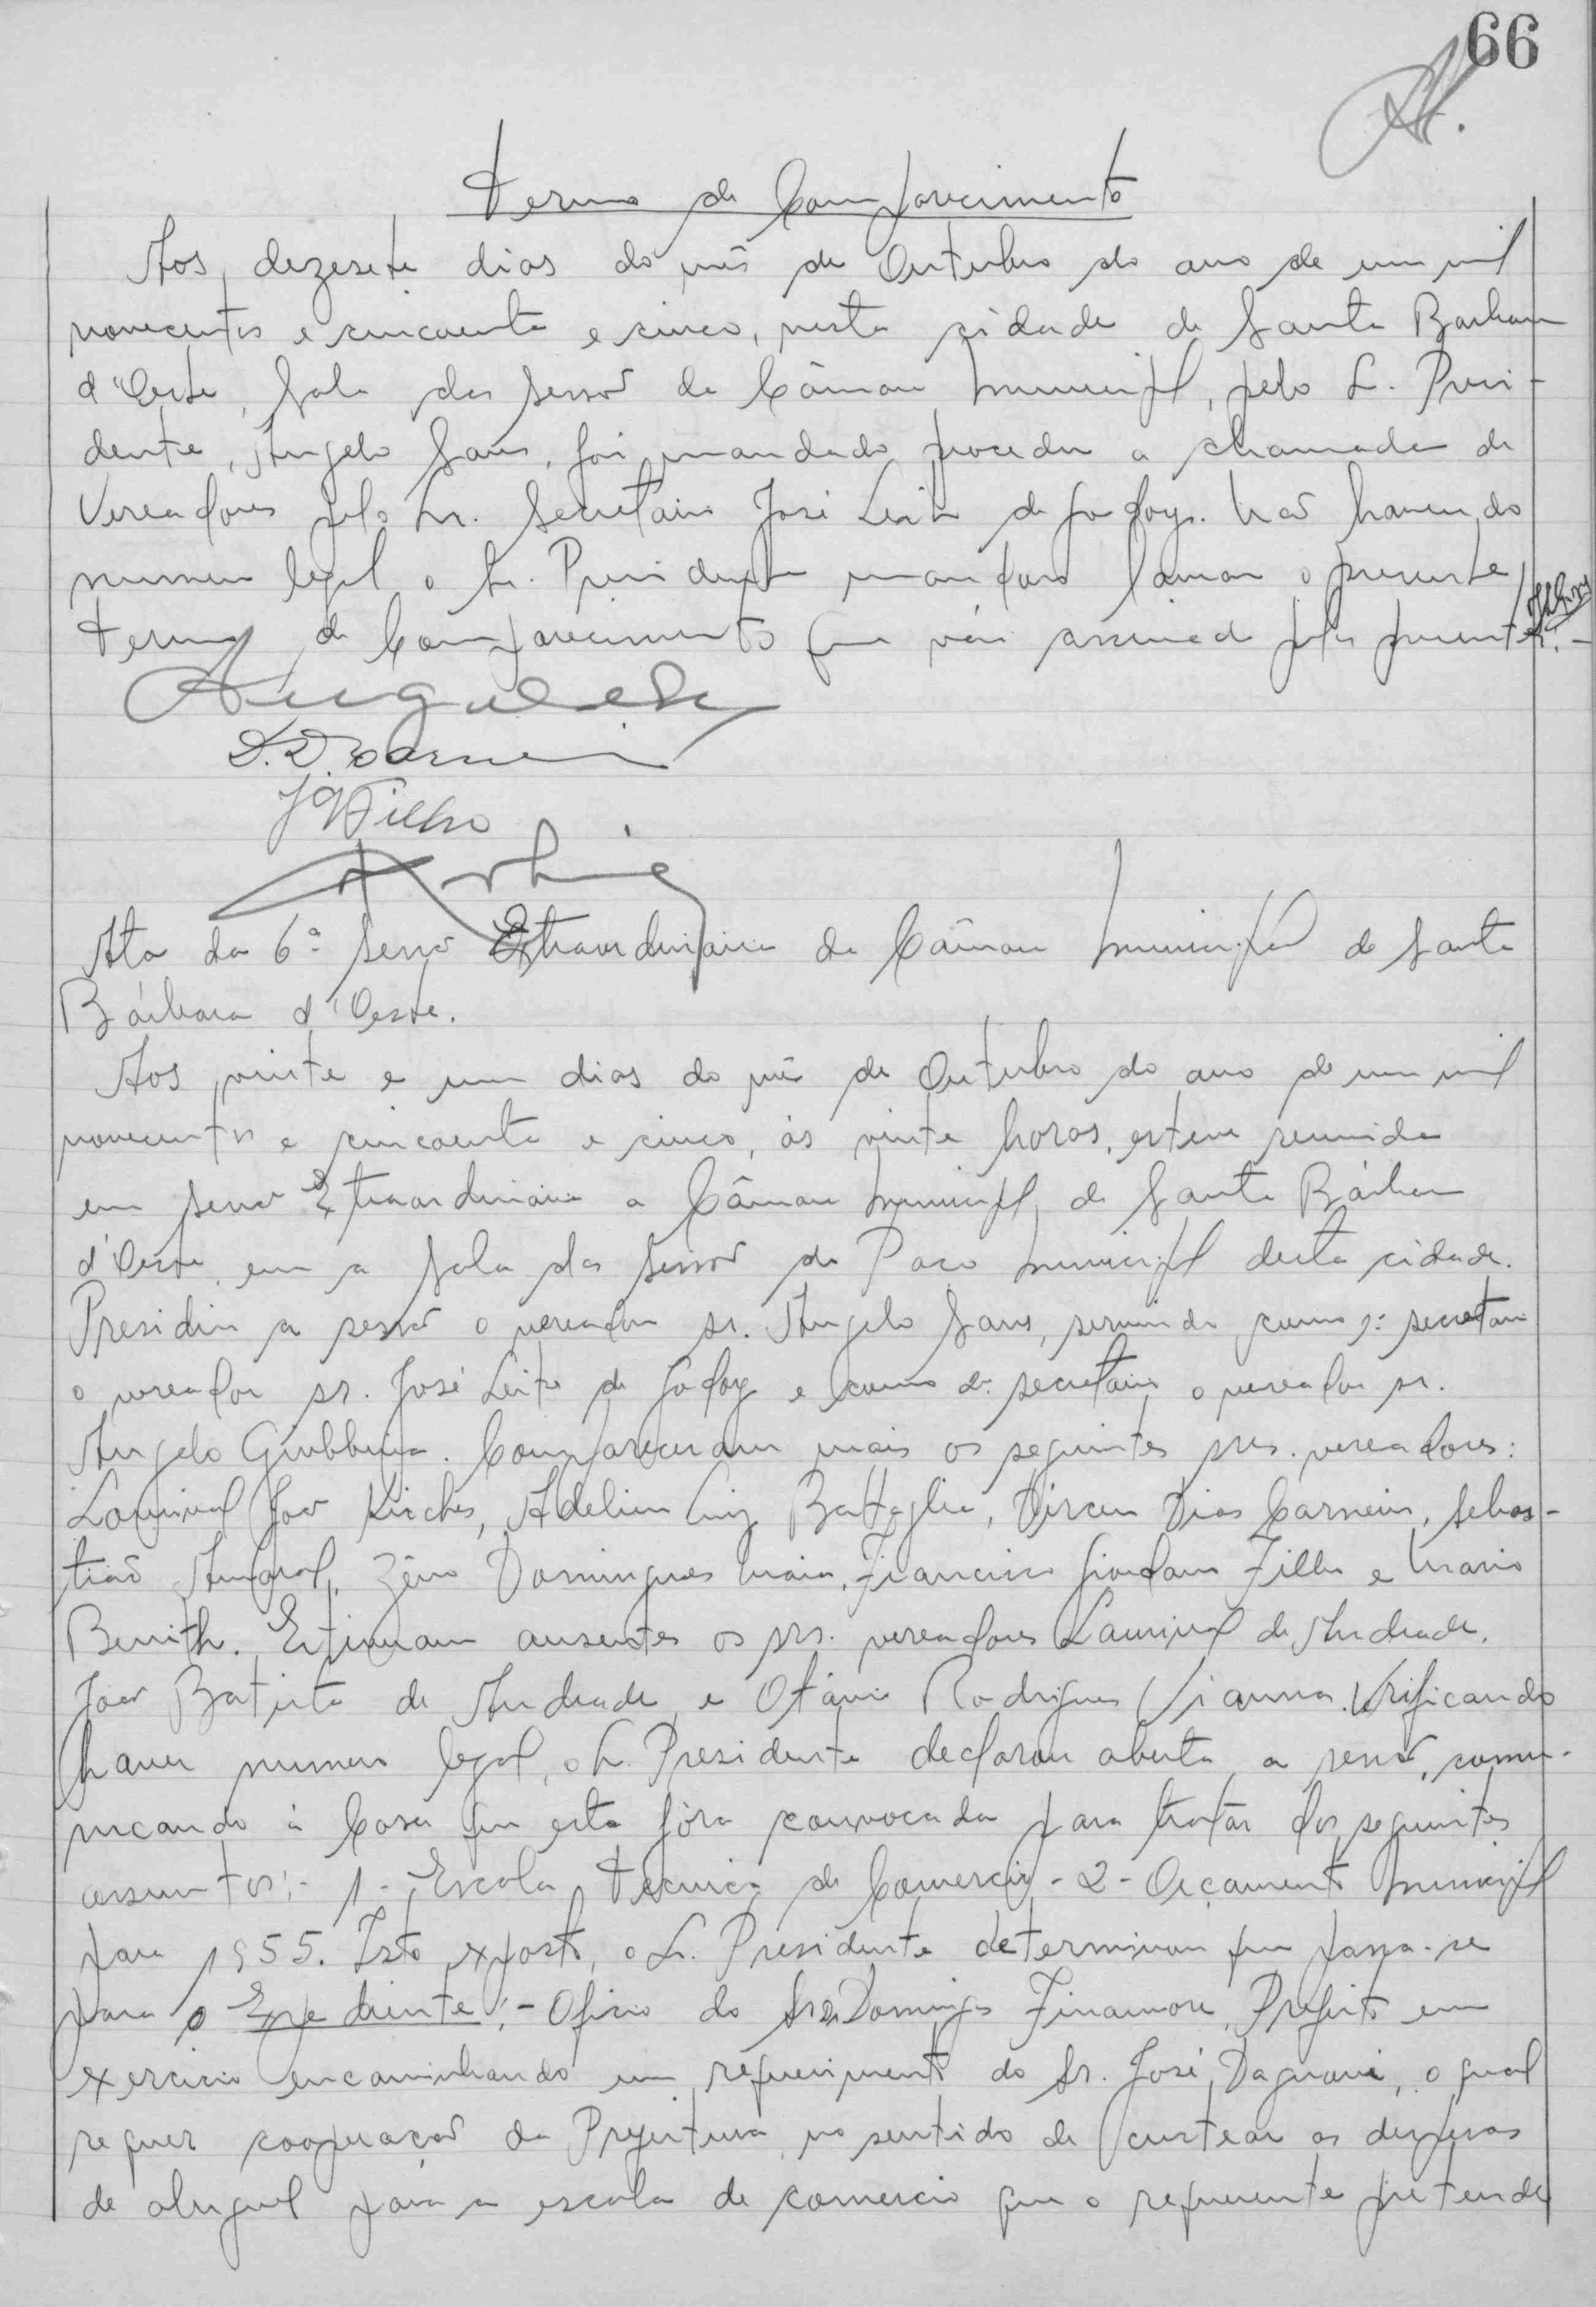 66
Termo de Comparecimento
Aos dezesete dias do mês de Outubro do ano de um mil
novecentos e cincoenta e cinco, nesta cidade de Santa Barbara
d'Oeste, Sala das Sessões da Câmara Municipal, pelo Sr. Presi-
dente, Angelo Sans, foi mandado proceder a chamada de
Vereadores pelo Sr. Secretario José Leite de Godoy. Não havendo
numero legal o Sr. Presidente mandou lavrar o presente
Termo de Comparecimento que vai assinado pelos presentes. -
D. D. Carneiro
JGFilho
Ata da 6ª Sessão Extraordinaria da Câmara Municipal de Santa
Bárbara d'Oeste.
Aos vinte e um dias do mês de Outubro do ano de um mil
novecentos e cincoenta e cinco, ás vinte horas, esteve reunida
em Sessão Extraordinaria a Câmara Municipal de Santa Bárbara
d'Oeste, em a Sala das Sessões do Paço Municipal desta cidade.
Presidiu a sessão o vereador sr. Angelo Sans, servindo como 1º secretario
o vereador sr. José Leite de Godoy e como 2º secretario o vereador sr.
Angelo Giubbina. Compareceram mais os seguintes srs. vereadores:
Lourival João Kirches, Adelino Luiz Battaglia, Dirceu Dias Carneiro, Sebas-
tião Amaral, Zêno Domingues Maia, Francisco Giordano Filho e Mario
Benith. Estiveram ausentes os srs. vereadores Laurival de Andrade,
João Batista de Andrade e Otávio Rodrigues Vianna. Verificando
haver numero legal, o Sr. Presidente declarou aberta a sessão, comu-
nicando á Casa que esta fôra convocada para tratar dos seguintes
assuntos:- 1- Escola Técnica de Comercio - 2 - Orçamento Municipal
para 1955. Isto exposto, o Sr. Presidente determinou que passa-se
para o Expediente:- Oficio do Sr. Domingos Finamore, Prefeito em
exercicio encaminhando um requerimento do Sr. José Dagnoni, o qual
requer cooperação da Prefeitura no sentido de custear as despesas
de aluguel para a escola de comercio que o requerente pretende